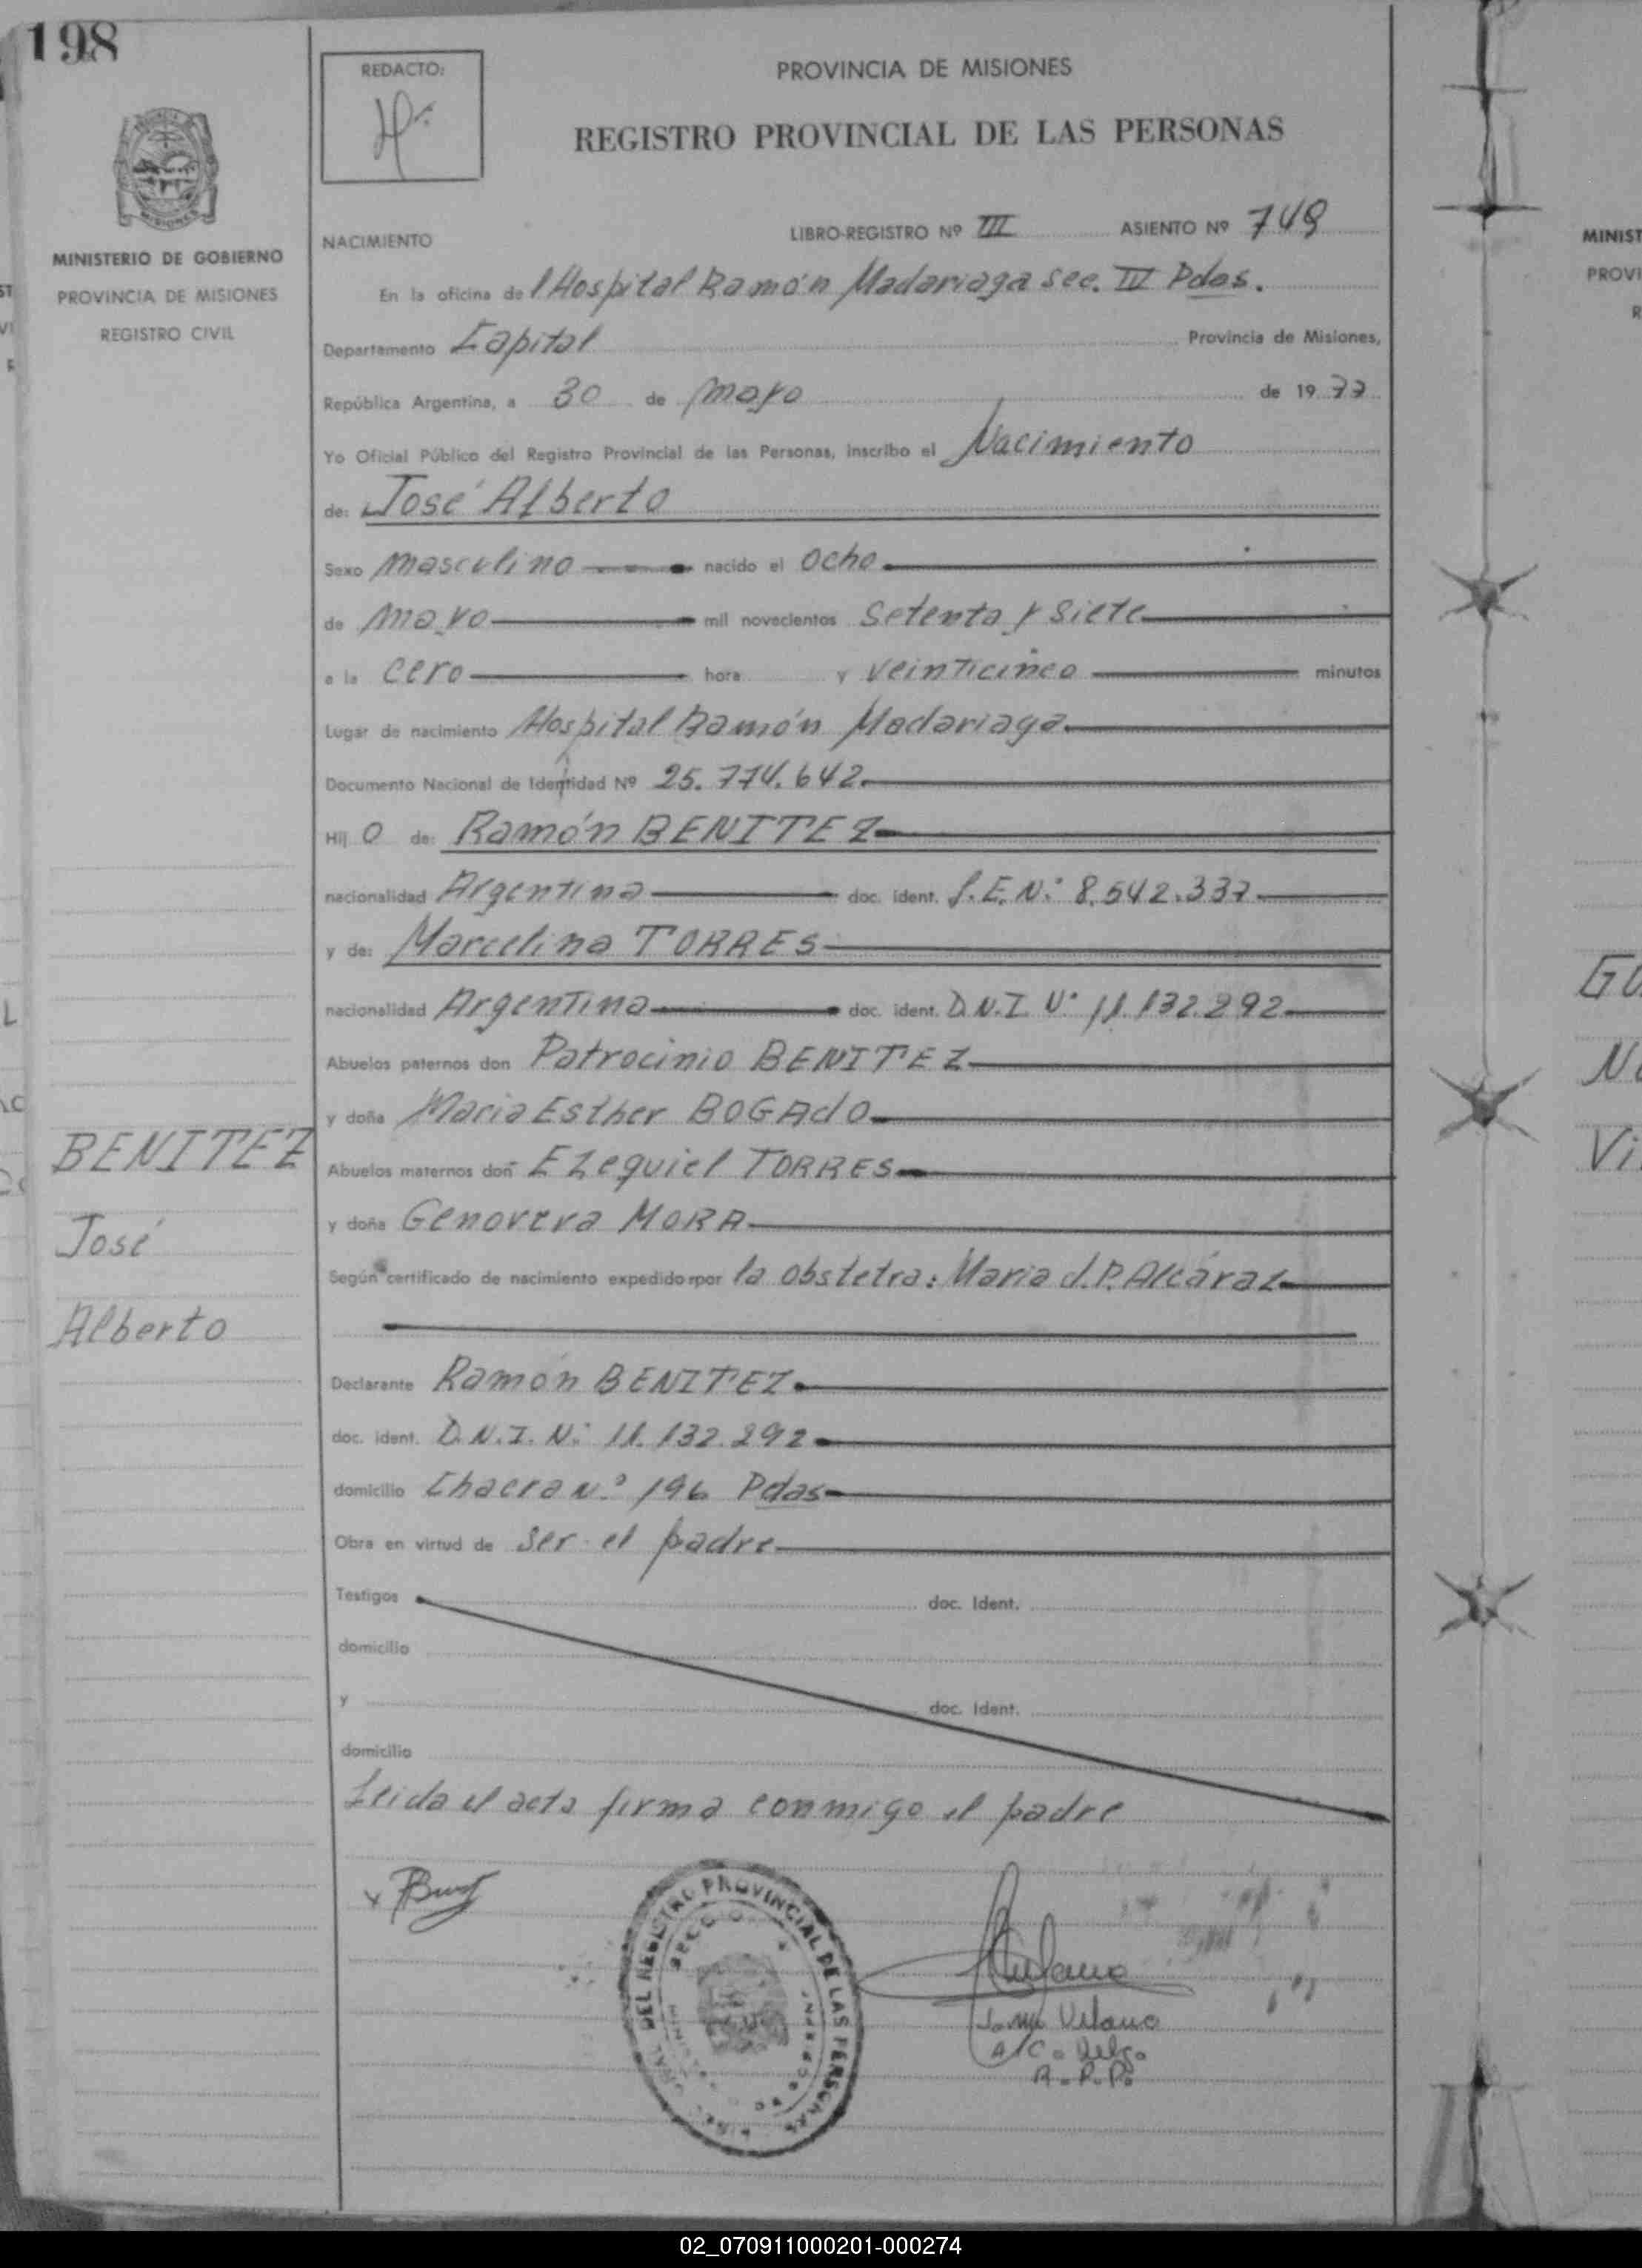 198
REDACTO:
PROVINCIA DE MISIONES
REGISTRO PROVINCIAL DE LAS PERSONAS
MINISTERIO DE GOBIERNO
PROVINCIA DE MISIONES
REGISTRO CIVIL
NACIMIENTO LIBRO-REGISTRO Nº III ASIENTO Nº 749
En la oficina del Hospital Ramón Madariaga sec. IV Pdas.
Departamento Capital Provincia de Misiones,
República Argentina, a 30 de mayo de 1977
Yo Oficial Público del Registro Provincial de las Personas, inscribo el Nacimiento
de: José Alberto
Sexo masculino nacido el ocho
de mayo mil novecientos setenta y siete
a la cero hora y veinticinco minutos
Lugar de nacimiento Hospital Ramón Madariaga
Documento Nacional de Identidad Nº 25.774.642
Hij o de: Ramón BENITEZ
nacionalidad Argentina doc. ident. L.E.Nº 8.542.337
y de: Marcelina TORRES
nacionalidad Argentina doc. ident. D.N.I. Nº 11.132.292
Abuelos paternos don Patrocinio BENITEZ
y doña Maria Esther BOGAdO
BENITEZ
José
Alberto
Abuelos maternos don Ezequiel TORRES
y doña Genoveva MORA
Según certificado de nacimiento expedido por la obstetra: Maria d.P. Alcáraz
Declarante Ramón BENITEZ
doc. ident. D.N.I. Nº 11.132.292
domicilio Chacra Nº 196 Pdas
Obra en virtud de ser el padre
Testigos doc. Ident.
domicilio
y doc. Ident.
domicilio
Leida el acta firma conmigo el padre
DEL REGISTRO PROVINCIAL DE LAS PERSONAS
A/C. Delg.
R.P.P.
02_070911000201-000274